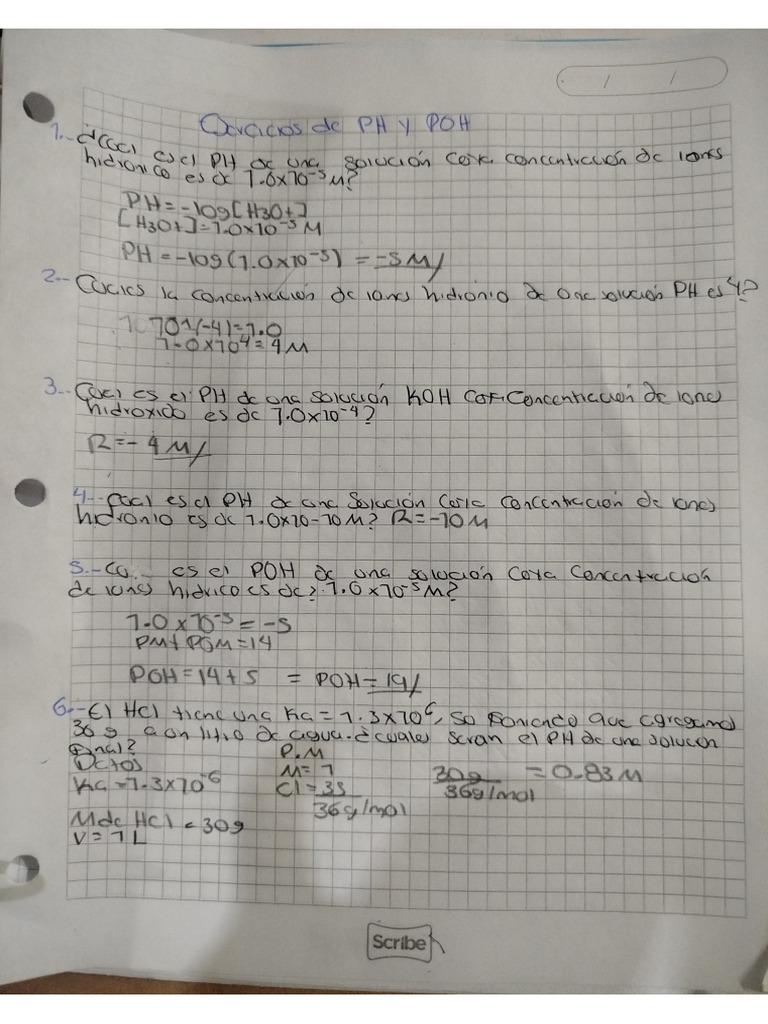 Ejercicios de PH y POH
1.- ¿Cual es el PH de una solución cuya concentración de iones
hidronico es de 1.0x10⁻⁵ M?
PH = -log [H3O+]
[H3O+] = 1.0x10⁻⁵ M
PH = -log (1.0x10⁻⁵) = -5M/
2.- Cual es la concentración de iones hidronio de una solución PH es 4?
101(-4) = 1.0
1.0x10⁴ = 4M
3.- Cual es el PH de una solución KOH con concentración de iones
hidroxido es de 1.0x10⁻⁴?
R = -4M/
4.- Cual es el PH de una solución cuya concentración de iones
hidronio es de 1.0x10-10 M? R = -10M
5.- es el POH de una solución cuya concentración
de iones hidrico es de? 1.0x10⁻⁵ M?
1.0x10⁻⁵ = -5
PM + POM = 14
POH = 14 + 5 = POH = 19/
6.- El HCl tiene una Ka = 1.3x10⁶, so poniendo que agregamos
30 g a un litro de agua. ¿cuales seran el PH de una solucion
final?
Datos
P.M
Ka = 1.3x10⁻⁶
M = 1
Cl = 35
36g/mol
30g = 0.83M
36g/mol
M de HCl = 30g
V = 1L
Scribe